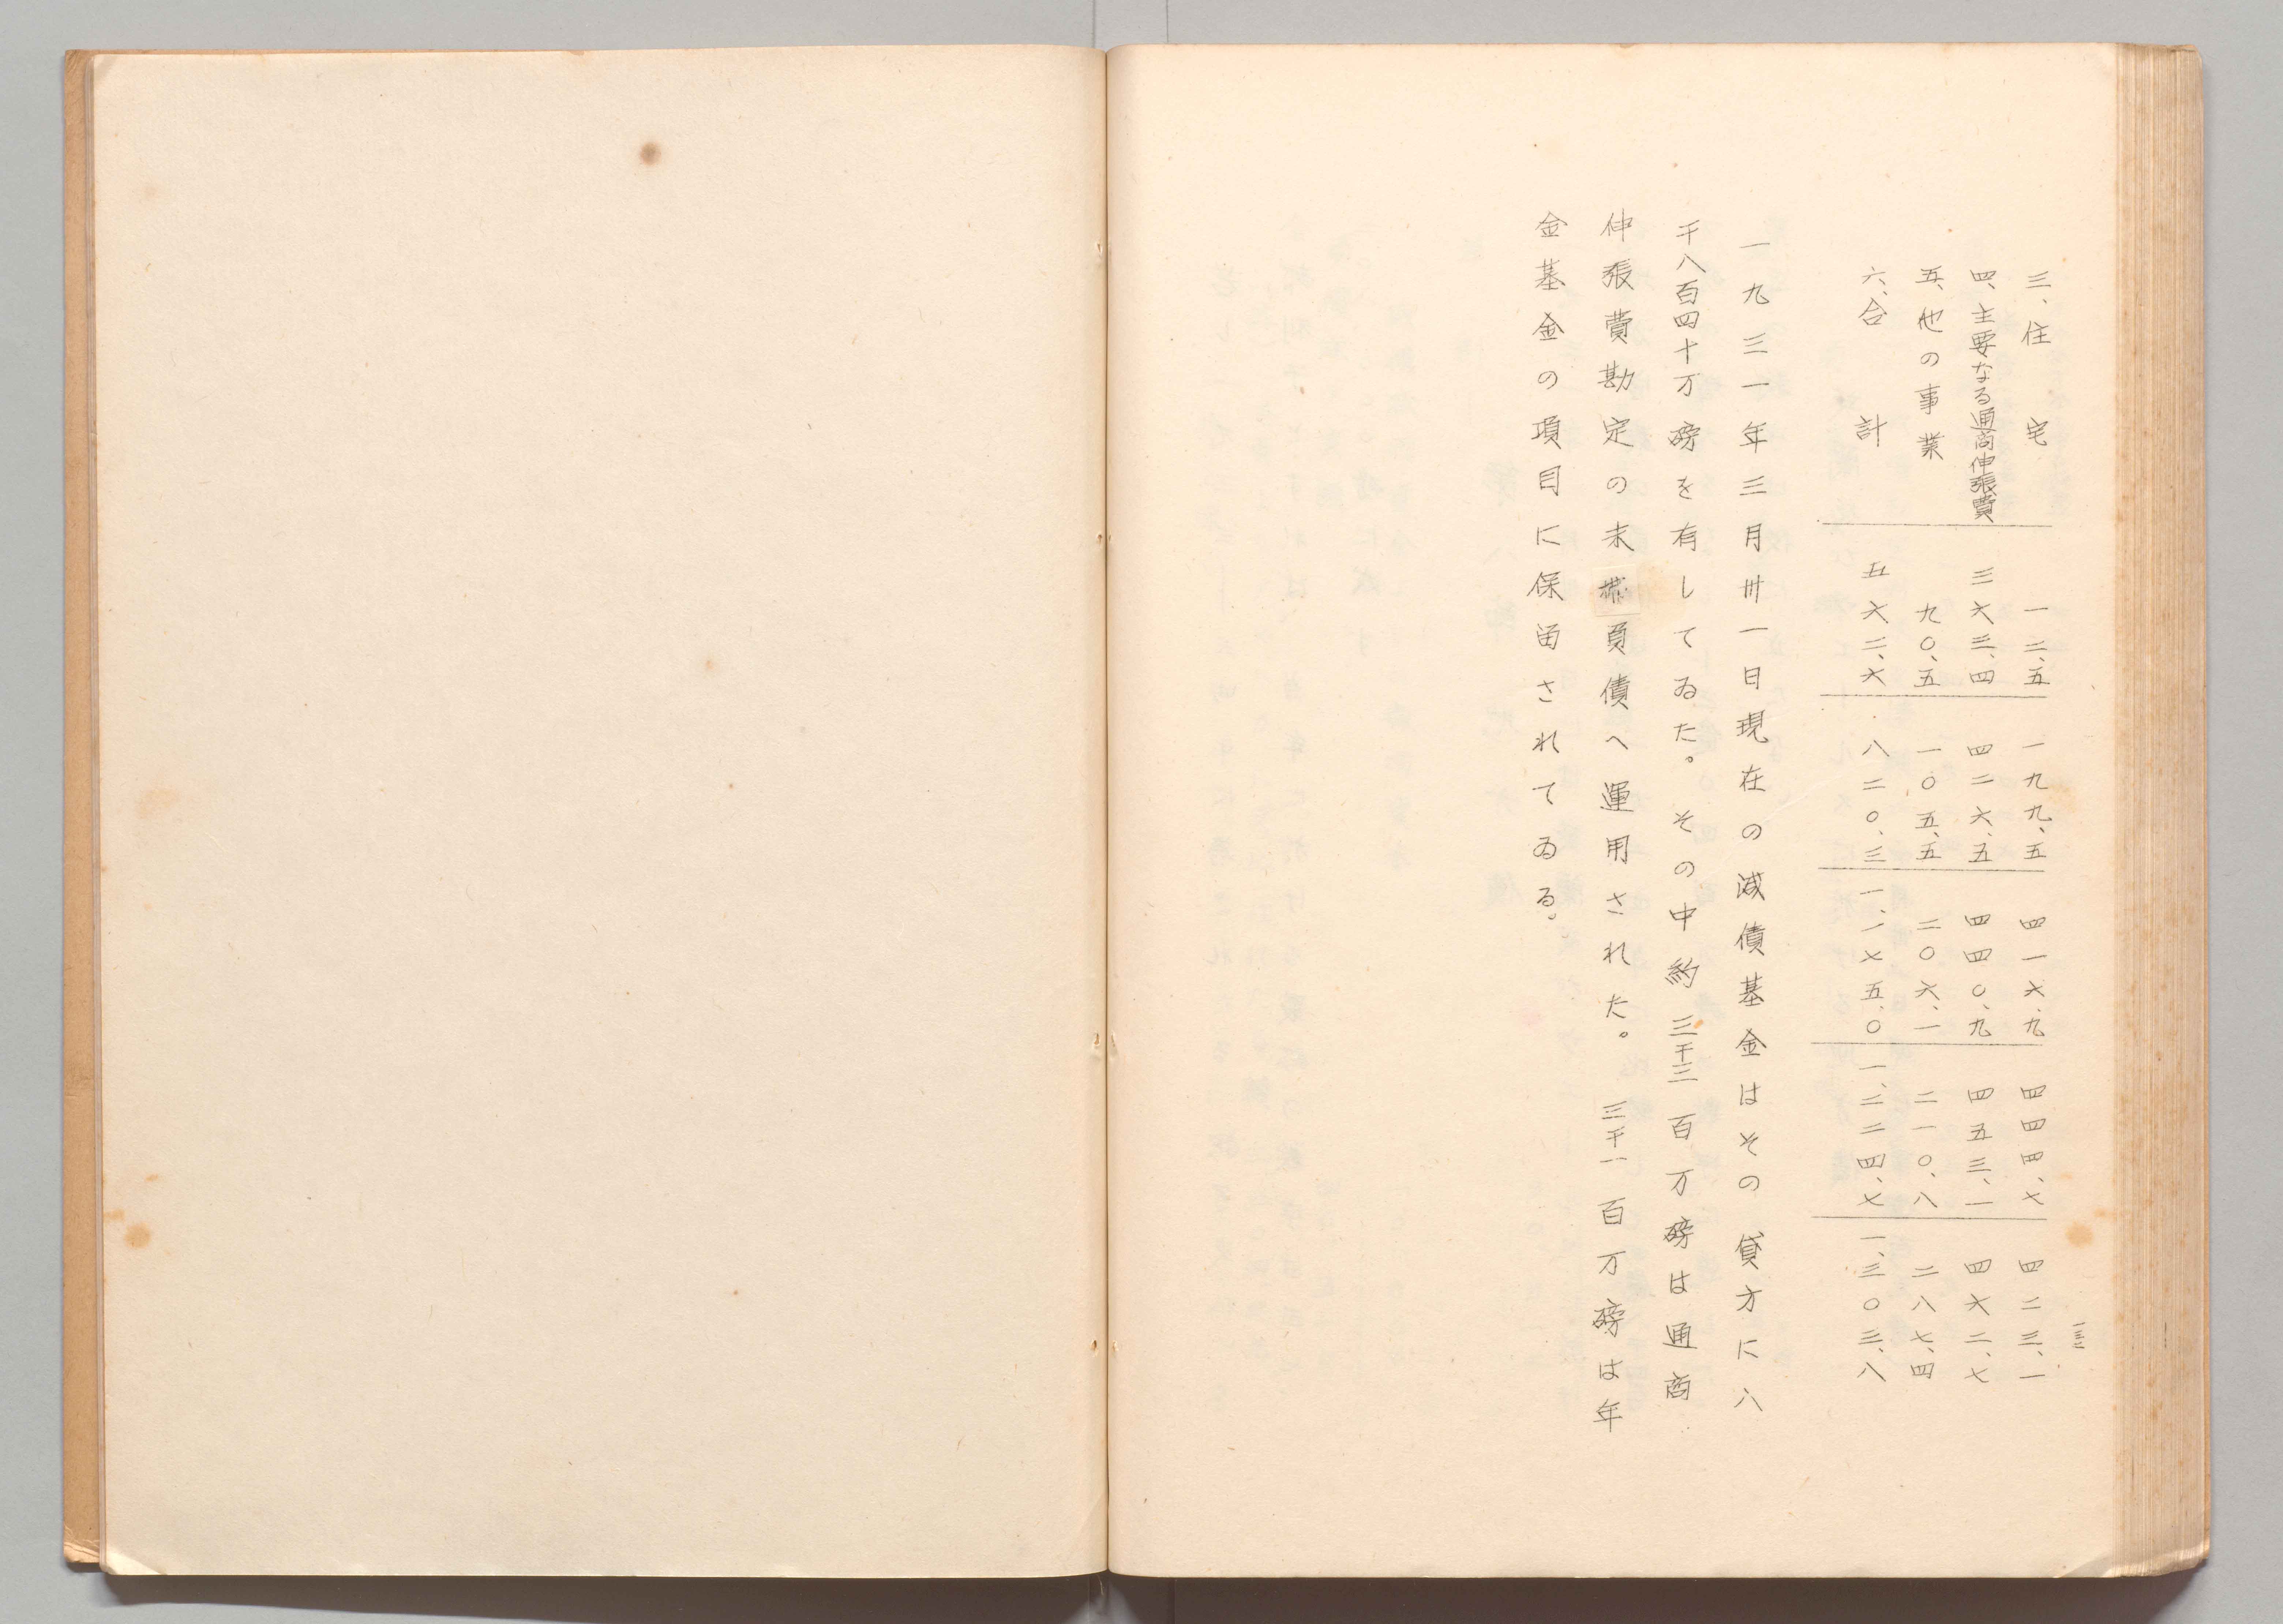 一三二
三、住宅 一二、五 一九九、五 四一六、九 四四四、七 四二三、一
四、主要なる通商伸張費 三六三、四 四二六、五 四四〇、九 四五三、一 四六二、七
五、他の事業 九〇、五 一〇五、五 二〇六、一 二一〇、八 二八七、四
六、合計 五六二、六 八二〇、三 一、一七五、〇 一、二二四、七 一、三〇三、八
一九三一年三月卅一日現在の減債基金はその貸方に八
千八百四十万磅を有してゐた。その中約三千三百万磅は通商
伸張費勘定の未負債へ運用された。三千一百万磅は年
金基金の項目に保留されてゐる。